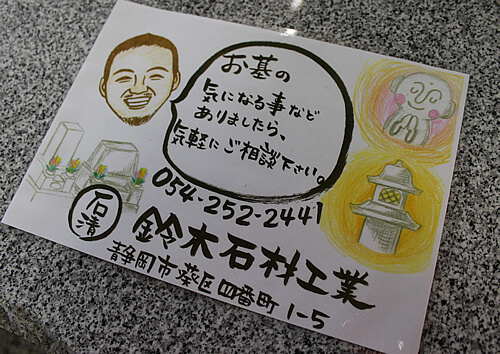 お墓の
気になる事など
ありましたら、
気軽にご相談下さい。
054-252-2441
石清
鈴木石材工業
静岡市葵区四番町1-5